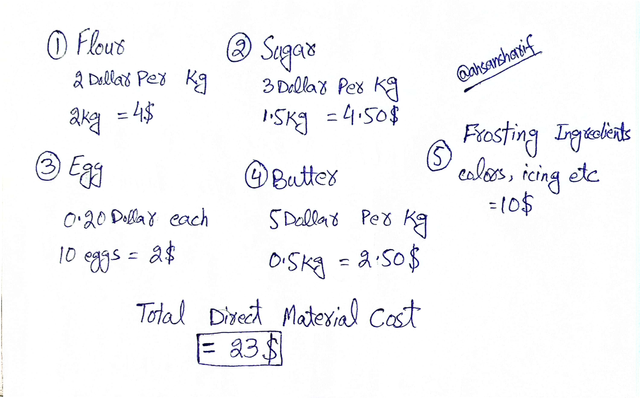 ① Flour
2 Dollar Per Kg
2kg = 4$
② Sugar
3 Dollar Per Kg
1.5Kg = 4.50$
@ahsansharif
③ Egg
0.20 Dollar each
10 eggs = 2$
④ Butter
5 Dollar Per Kg
0.5Kg = 2.50$
⑤ Frosting Ingredients
colors, icing etc
=10$
Total Direct Material Cost
= 23$